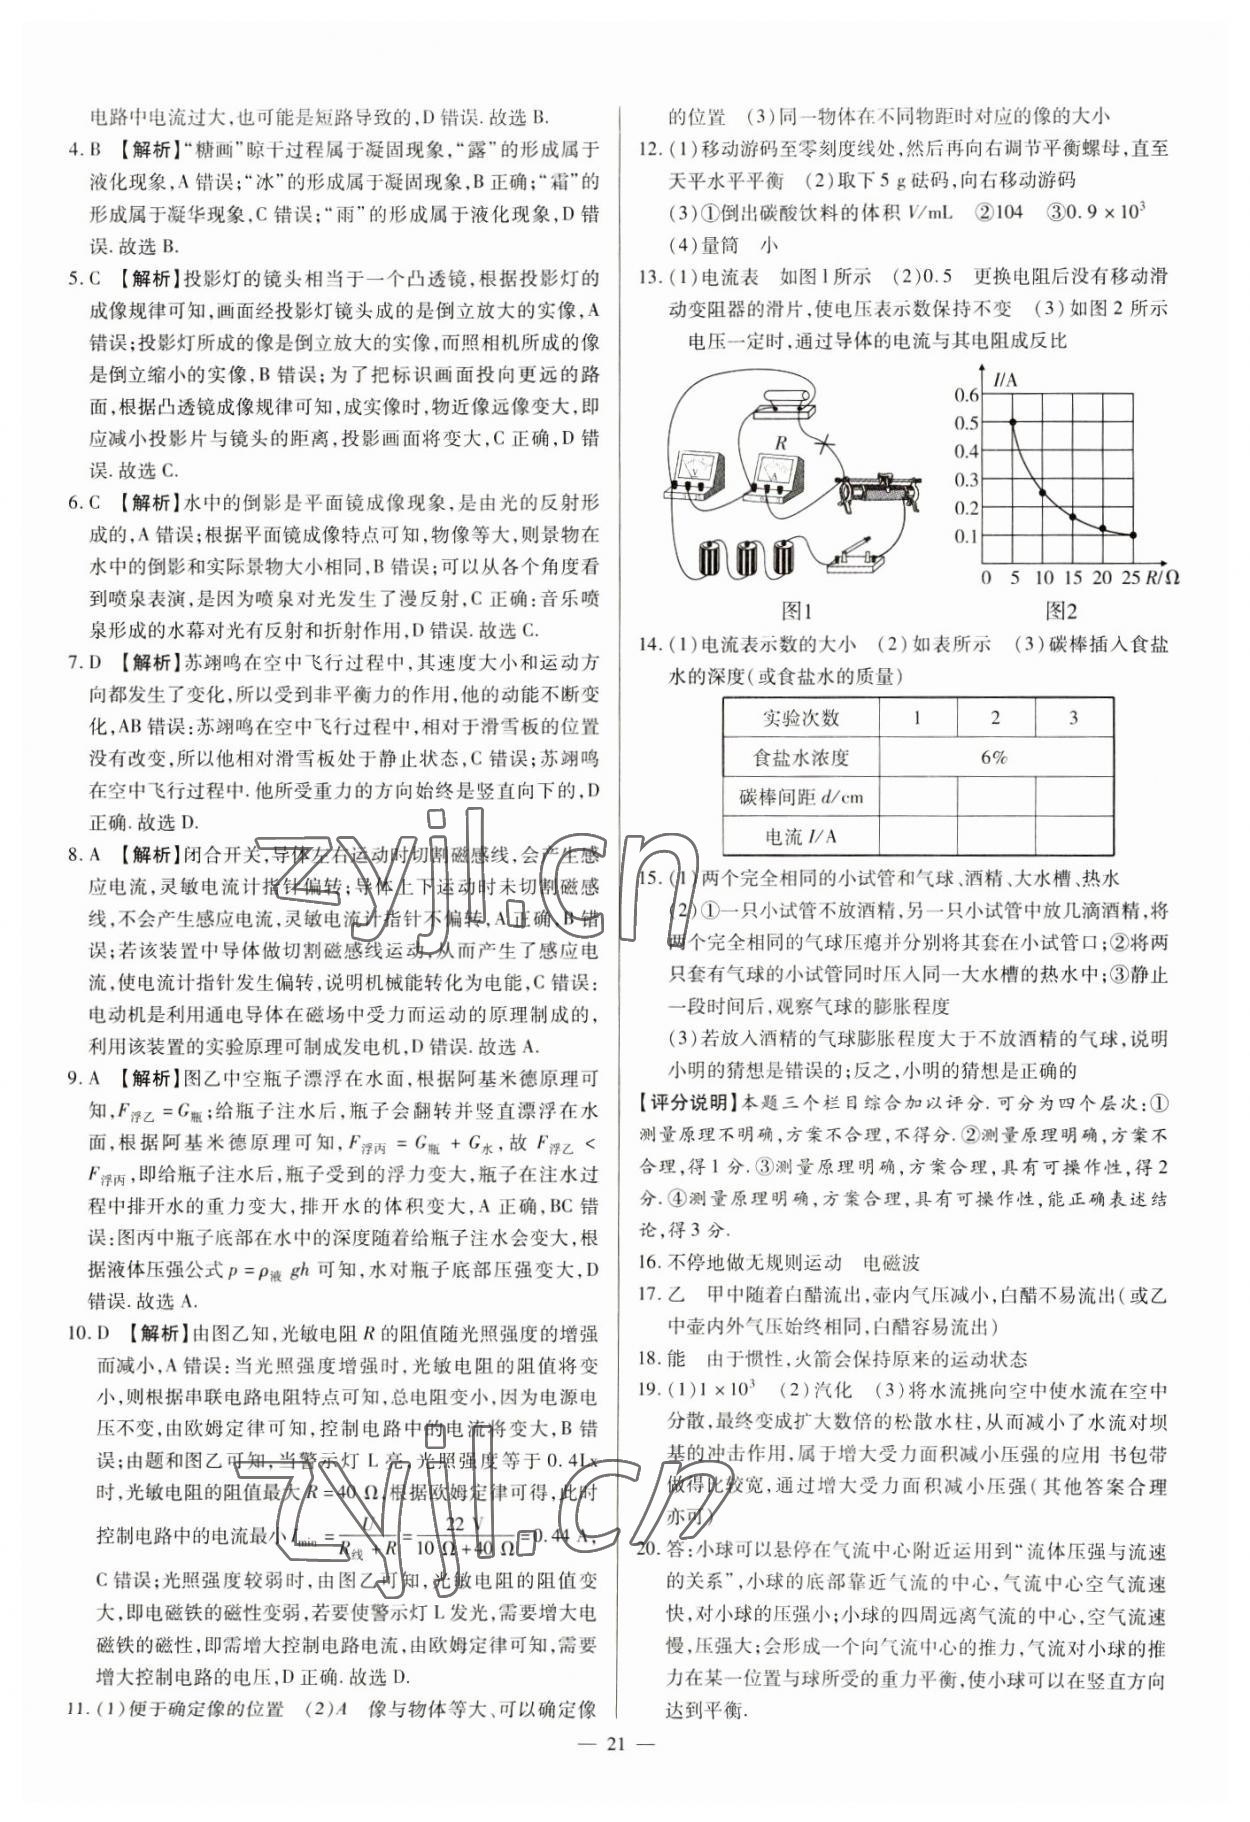 电路中电流过大,也可能是短路导致的,D错误.故选B.
4. B 【解析】“糖画”晾干过程属于凝固现象,“露”的形成属于
液化现象,A错误;“冰”的形成属于凝固现象,B正确;“霜”的
形成属于凝华现象,C错误;“雨”的形成属于液化现象,D错
误.故选B.
5. C 【解析】投影灯的镜头相当于一个凸透镜,根据投影灯的
成像规律可知,画面经投影灯镜头成的是倒立放大的实像,A
错误;投影灯所成的像是倒立放大的实像,而照相机所成的像
是倒立缩小的实像,B错误;为了把标识画面投向更远的路
面,根据凸透镜成像规律可知,成实像时,物近像远像变大,即
应减小投影片与镜头的距离,投影画面将变大,C正确,D错
误.故选C.
6. C 【解析】水中的倒影是平面镜成像现象,是由光的反射形
成的,A错误;根据平面镜成像特点可知,物像等大,则景物在
水中的倒影和实际景物大小相同,B错误;可以从各个角度看
到喷泉表演,是因为喷泉对光发生了漫反射,C正确;音乐喷
泉形成的水幕对光有反射和折射作用,D错误.故选C.
7. D 【解析】苏翊鸣在空中飞行过程中,其速度大小和运动方
向都发生了变化,所以受到非平衡力的作用,他的动能不断变
化,AB错误;苏翊鸣在空中飞行过程中,相对于滑雪板的位置
没有改变,所以他相对滑雪板处于静止状态,C错误;苏翊鸣
在空中飞行过程中.他所受重力的方向始终是竖直向下的,D
正确.故选D.
8. A 【解析】闭合开关,导体左右运动时切割磁感线,会产生感
应电流,灵敏电流计指针偏转;导体上下运动时未切割磁感
线,不会产生感应电流,灵敏电流计指针不偏转,A正确,B错
误;若该装置中导体做切割磁感线运动,从而产生了感应电
流,使电流计指针发生偏转,说明机械能转化为电能,C错误;
电动机是利用通电导体在磁场中受力而运动的原理制成的,
利用该装置的实验原理可制成发电机,D错误.故选A.
9. A 【解析】图乙中空瓶子漂浮在水面,根据阿基米德原理可
知,F浮乙=G瓶;给瓶子注水后,瓶子会翻转并竖直漂浮在水
面,根据阿基米德原理可知,F浮丙=G瓶+G水,故F浮乙<
F浮丙,即给瓶子注水后,瓶子受到的浮力变大,瓶子在注水过
程中排开水的重力变大,排开水的体积变大,A正确,BC错
误;图丙中瓶子底部在水中的深度随着给瓶子注水会变大,根
据液体压强公式p=ρ液gh可知,水对瓶子底部压强变大,D
错误.故选A.
10. D 【解析】由图乙知,光敏电阻R的阻值随光照强度的增强
而减小,A错误;当光照强度增强时,光敏电阻的阻值将变
小,则根据串联电路电阻特点可知,总电阻变小,因为电源电
压不变,由欧姆定律可知,控制电路中的电流将变大,B错
误;由题和图乙可知,当警示灯L亮,光照强度等于0.4Lx
时,光敏电阻的阻值最大R=40 Ω,根据欧姆定律可得,此时
控制电路中的电流最小Imin=U/(R线+R)=22 V/(10 Ω+40 Ω)=0.44 A,
C错误;光照强度较弱时,由图乙可知,光敏电阻的阻值变
大,即电磁铁的磁性变弱,若要使警示灯L发光,需要增大电
磁铁的磁性,即需增大控制电路电流,由欧姆定律可知,需要
增大控制电路的电压,D正确.故选D.
11. (1)便于确定像的位置 (2)A 像与物体等大、可以确定像
的位置 (3)同一物体在不同物距时对应的像的大小
12. (1)移动游码至零刻度线处,然后再向右调节平衡螺母,直至
天平水平平衡 (2)取下5 g砝码,向右移动游码
(3)①倒出碳酸饮料的体积V/mL ②104 ③0.9×10³
(4)量筒 小
13. (1)电流表 如图1所示 (2)0.5 更换电阻后没有移动滑
动变阻器的滑片,使电压表示数保持不变 (3)如图2所示
电压一定时,通过导体的电流与其电阻成反比
R
V
A
图1
I/A
0.6
0.5
0.4
0.3
0.2
0.1
0 5 10 15 20 25 R/Ω
图2
14. (1)电流表示数的大小 (2)如表所示 (3)碳棒插入食盐
水的深度(或食盐水的质量)
实验次数 1 2 3
食盐水浓度 6%
碳棒间距d/cm
电流I/A
15. (1)两个完全相同的小试管和气球、酒精、大水槽、热水
(2)①一只小试管不放酒精,另一只小试管中放几滴酒精,将
两个完全相同的气球压瘪并分别将其套在小试管口;②将两
只套有气球的小试管同时压入同一大水槽的热水中;③静止
一段时间后,观察气球的膨胀程度
(3)若放入酒精的气球膨胀程度大于不放酒精的气球,说明
小明的猜想是错误的;反之,小明的猜想是正确的
【评分说明】本题三个栏目综合加以评分.可分为四个层次:①
测量原理不明确,方案不合理,不得分.②测量原理明确,方案不
合理,得1分.③测量原理明确,方案合理,具有可操作性,得2
分.④测量原理明确,方案合理,具有可操作性,能正确表述结
论,得3分.
16. 不停地做无规则运动 电磁波
17. 乙 甲中随着白醋流出,壶内气压减小,白醋不易流出(或乙
中壶内外气压始终相同,白醋容易流出)
18. 能 由于惯性,火箭会保持原来的运动状态
19. (1)1×10³ (2)汽化 (3)将水流挑向空中使水流在空中
分散,最终变成扩大数倍的松散水柱,从而减小了水流对坝
基的冲击作用,属于增大受力面积减小压强的应用 书包带
做得比较宽,通过增大受力面积减小压强(其他答案合理
亦可)
20. 答:小球可以悬停在气流中心附近运用到“流体压强与流速
的关系”,小球的底部靠近气流的中心,气流中心空气流速
快,对小球的压强小;小球的四周远离气流的中心,空气流速
慢,压强大;会形成一个向气流中心的推力,气流对小球的推
力在某一位置与球所受的重力平衡,使小球可以在竖直方向
达到平衡.
— 21 —
zyjl.cn
zyjl.cn